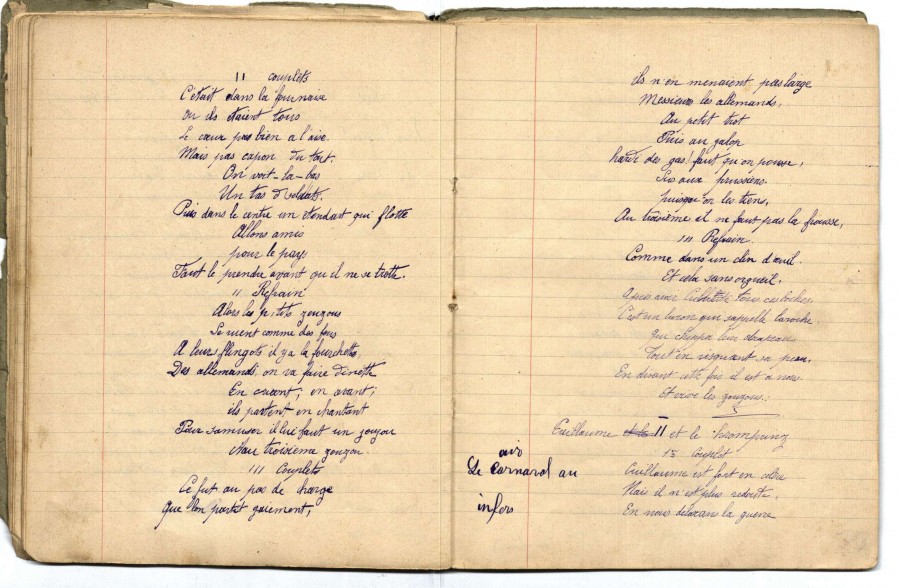 11 couplets
C'était dans la fournaise
ou ils étaient tous
Le cœur pas bien a l'aise
Mais pas capon du tout.
On voit la-bas
Un tas d'soldats.
Puis dans le centre un étendart qui flotte
Allons amis
pour le pays
Faut le prendre avant qu'il ne se trotte.
11 Refrain
Alors les p'tits zouzous
Se ruent comme des fous
A leurs flingots il y a la fourchette,
Des allemands on va faire dinette
En avant, en avant,
ils partent en chantant
Pour s'amuser il lui faut un zouzou
Au troisième zouzou.
111 Couplets
Ce fut au pas de charge
Que l'on partit gaiement,
Ils n'en menaient pas large
Messieurs les allemands,
Au petit trot
Puis au galop
hardi des gas! faut qu'on pousse,
Sus aux prussiens
puisqu'on les tiens,
Au troisième il ne faut pas la frousse,
111 Refrain.
Comme dans un clin d'œuil.
Et cela sans orgueil.
Apres avoir tous ces boches,
C'est un luron qui s'appelle Laroche.
Qui chippa leur drapeau
Tout en risquant sa peau,
En disant cette fois il est a nous
Et vive les zouzous.
Guillaume II et le
air
Le Carnaval au
infers
1er Couplet
Guillaume est fort en colère
Mais il n'est plus
En nous la guerre